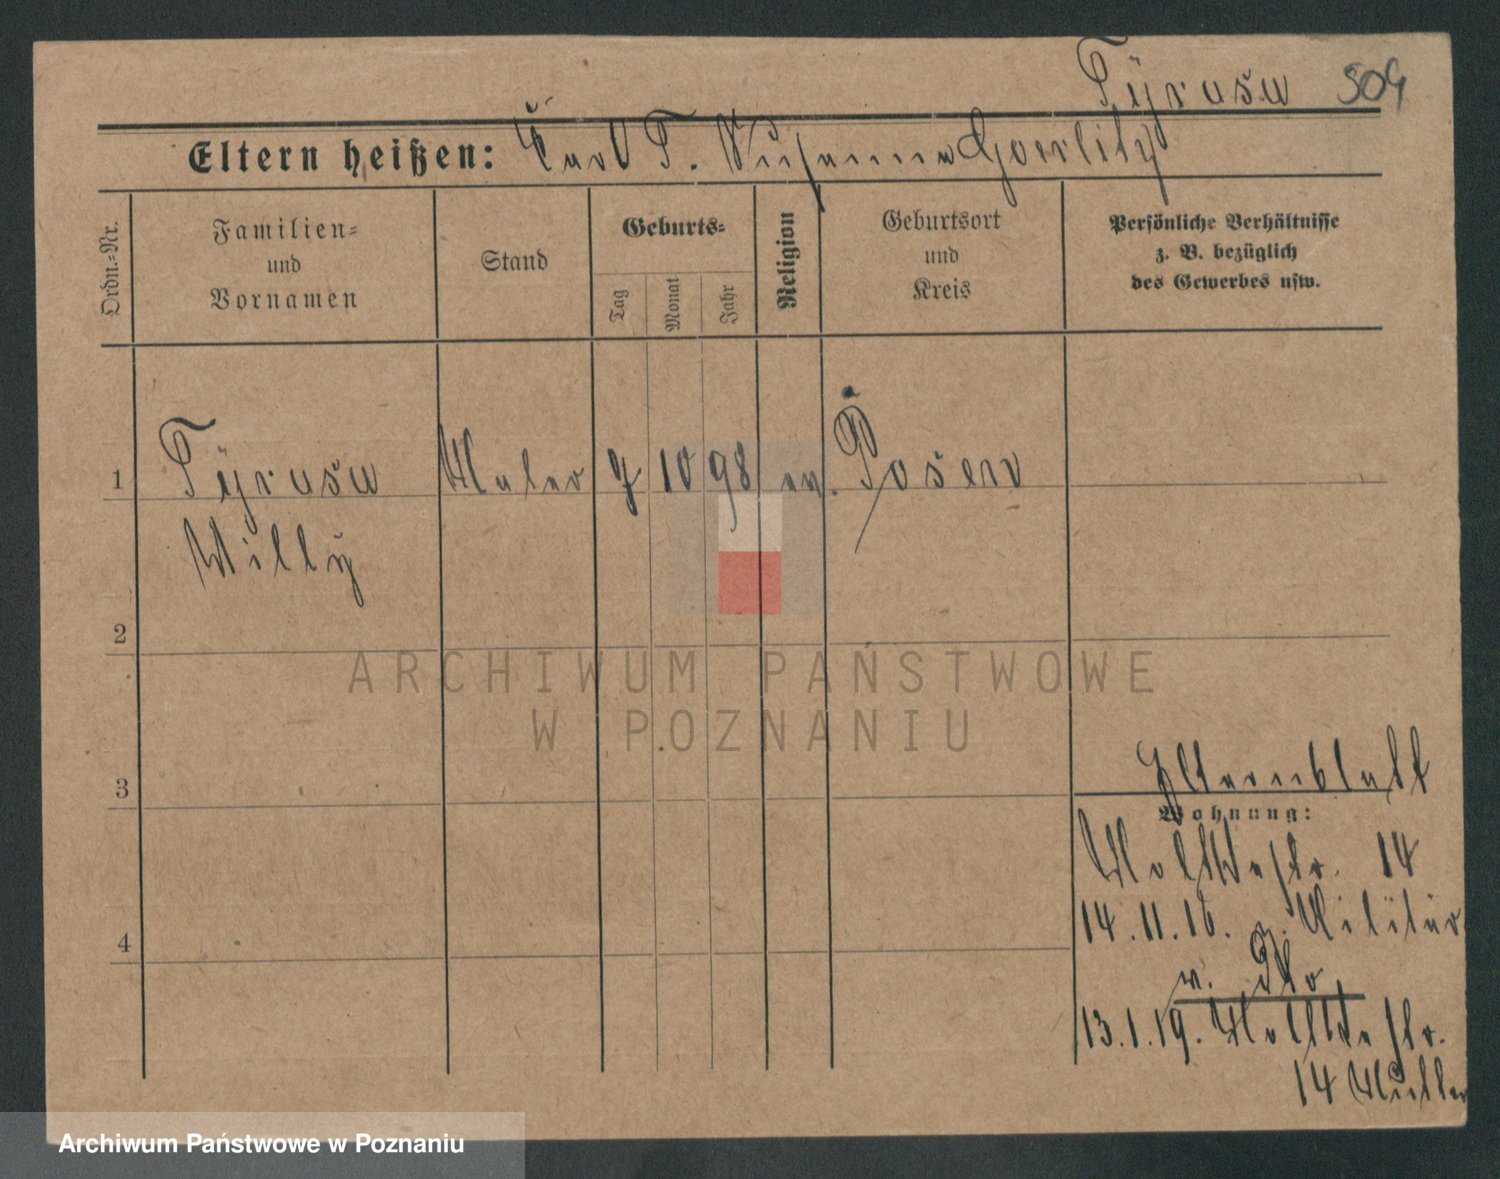 Tÿrusw 504
Eltern heißen: Carl T. Susanna Goerlitz
Ordn.-Nr.
Familien-
und
Vornamen
Stand
Geburts-
Tag
Monat
Jahr
Religion
Geburtsort
und
Kreis
Persönliche Verhältnisse
z. B. bezüglich
des Gewerbes usw.
1 Maler 7 10 98 ev. Posen
Willy
2
3
4
Elternblatt
Wohnung:
Moltkestr. 14
14.11.16. z. Militär
13.1.19. Moltkestr.
14 Mutter
ARCHIWUM PAŃSTWOWE
W POZNANIU
Archiwum Państwowe w Poznaniu